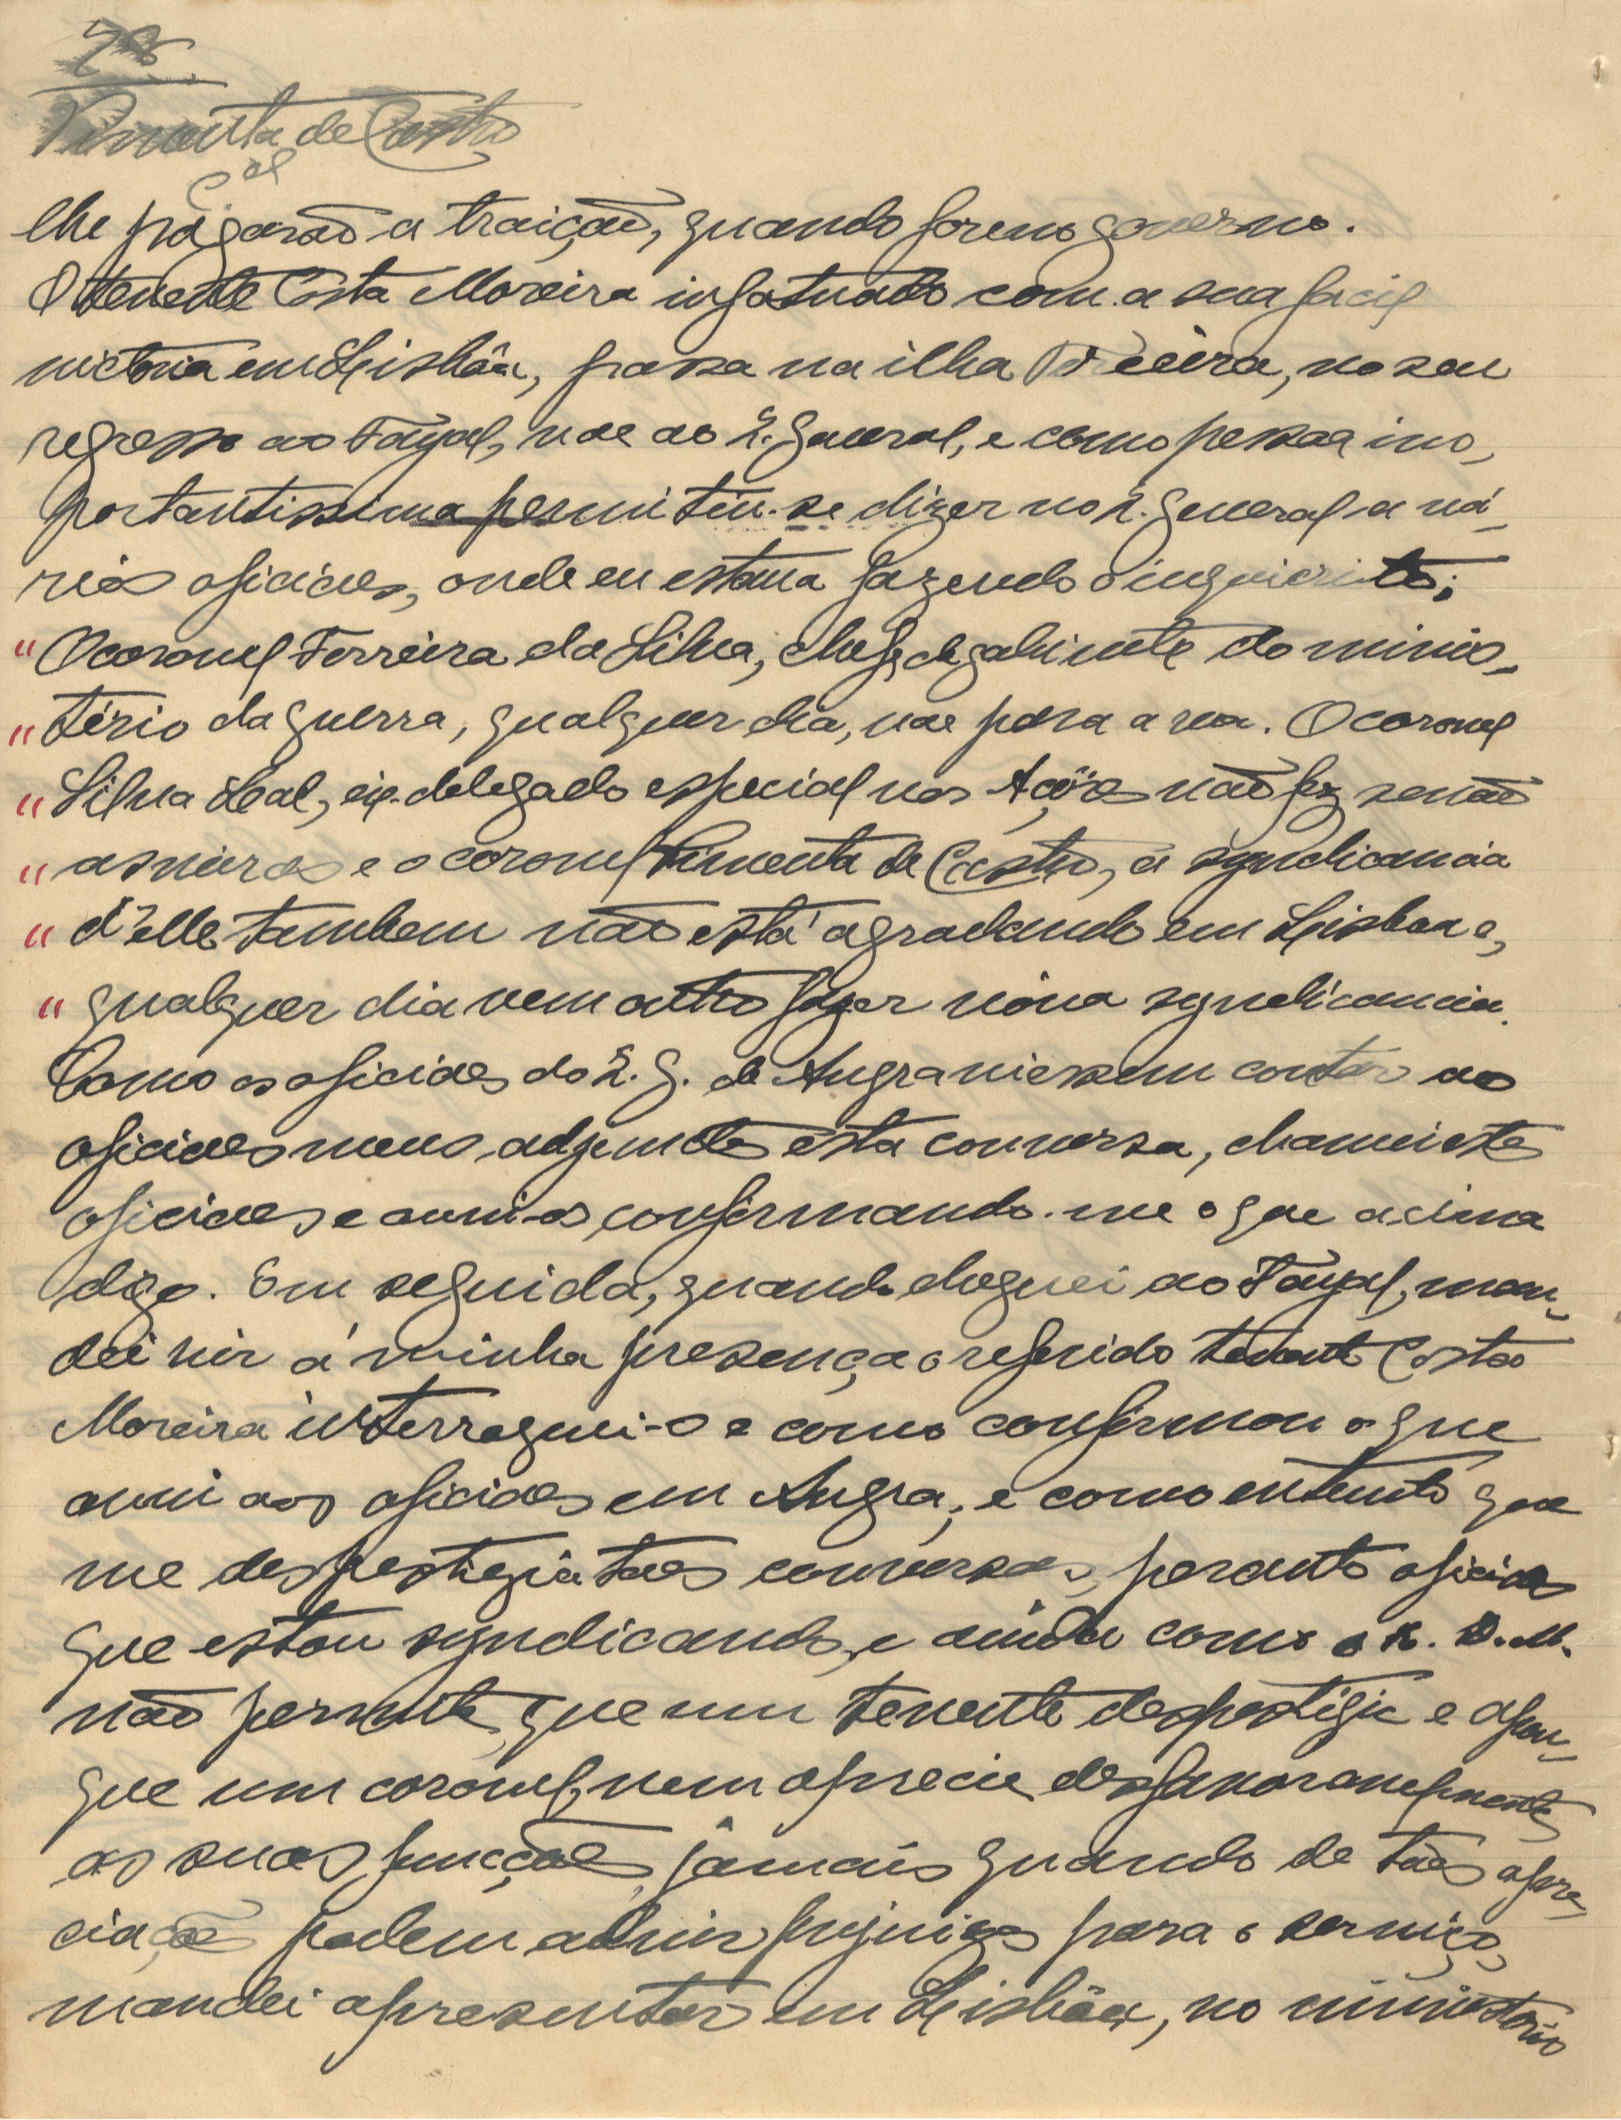 Pimenta de Castro
Cel
lhe pagarão a traição, quando fôr no governo.
O tenente Costa Moreira infatuado com a sua facil
victoria em Lisbôa, passa na ilha Terceira, no seu
regresso ao Fayal, vae ao Q. General, e como pessoa im-
portantissima permitiu-se dizer no Q. General a vá-
rios oficiaes, onde eu estava fazendo o inquerito;
"O coronel Ferreira da Silva, chefe de gabinete do minis-
"tério da guerra, qualquer dia, vae para a rua. O coronel
"Silva Leal, ex-delegado especial nos Açôres não fez senão
"asneiras e o coronel Pimenta de Castro, a syndicancia
"d'elle tambem não está agradando em Lisboa e,
"qualquer dia vem outro fazer nova syndicancia.
Como os oficiaes do Q. G. de Angra viessem contar aos
oficiaes meus adjuntos esta conversa, chamei estes
oficiaes e ouvi-os confirmando-me o que acima
digo. Em seguida, quando cheguei ao Fayal, man-
dei vir á minha presença o referido tenente Costa
Moreira interroguei-o e como confirmou o que
ouvi aos oficiaes em Angra, e como entendo que
me despestigia taes conversas, perante oficiaes
que estou syndicando, e ainda como o R. D. M.
não permite, que um tenente despestigie e apou-
que um coronel, nem aprecie desfavoravelmente
as suas funcções, jámais quando de taes apre-
ciações podem advir prejuizos para o serviço,
mandei apresentar em Lisbôa, no ministerio